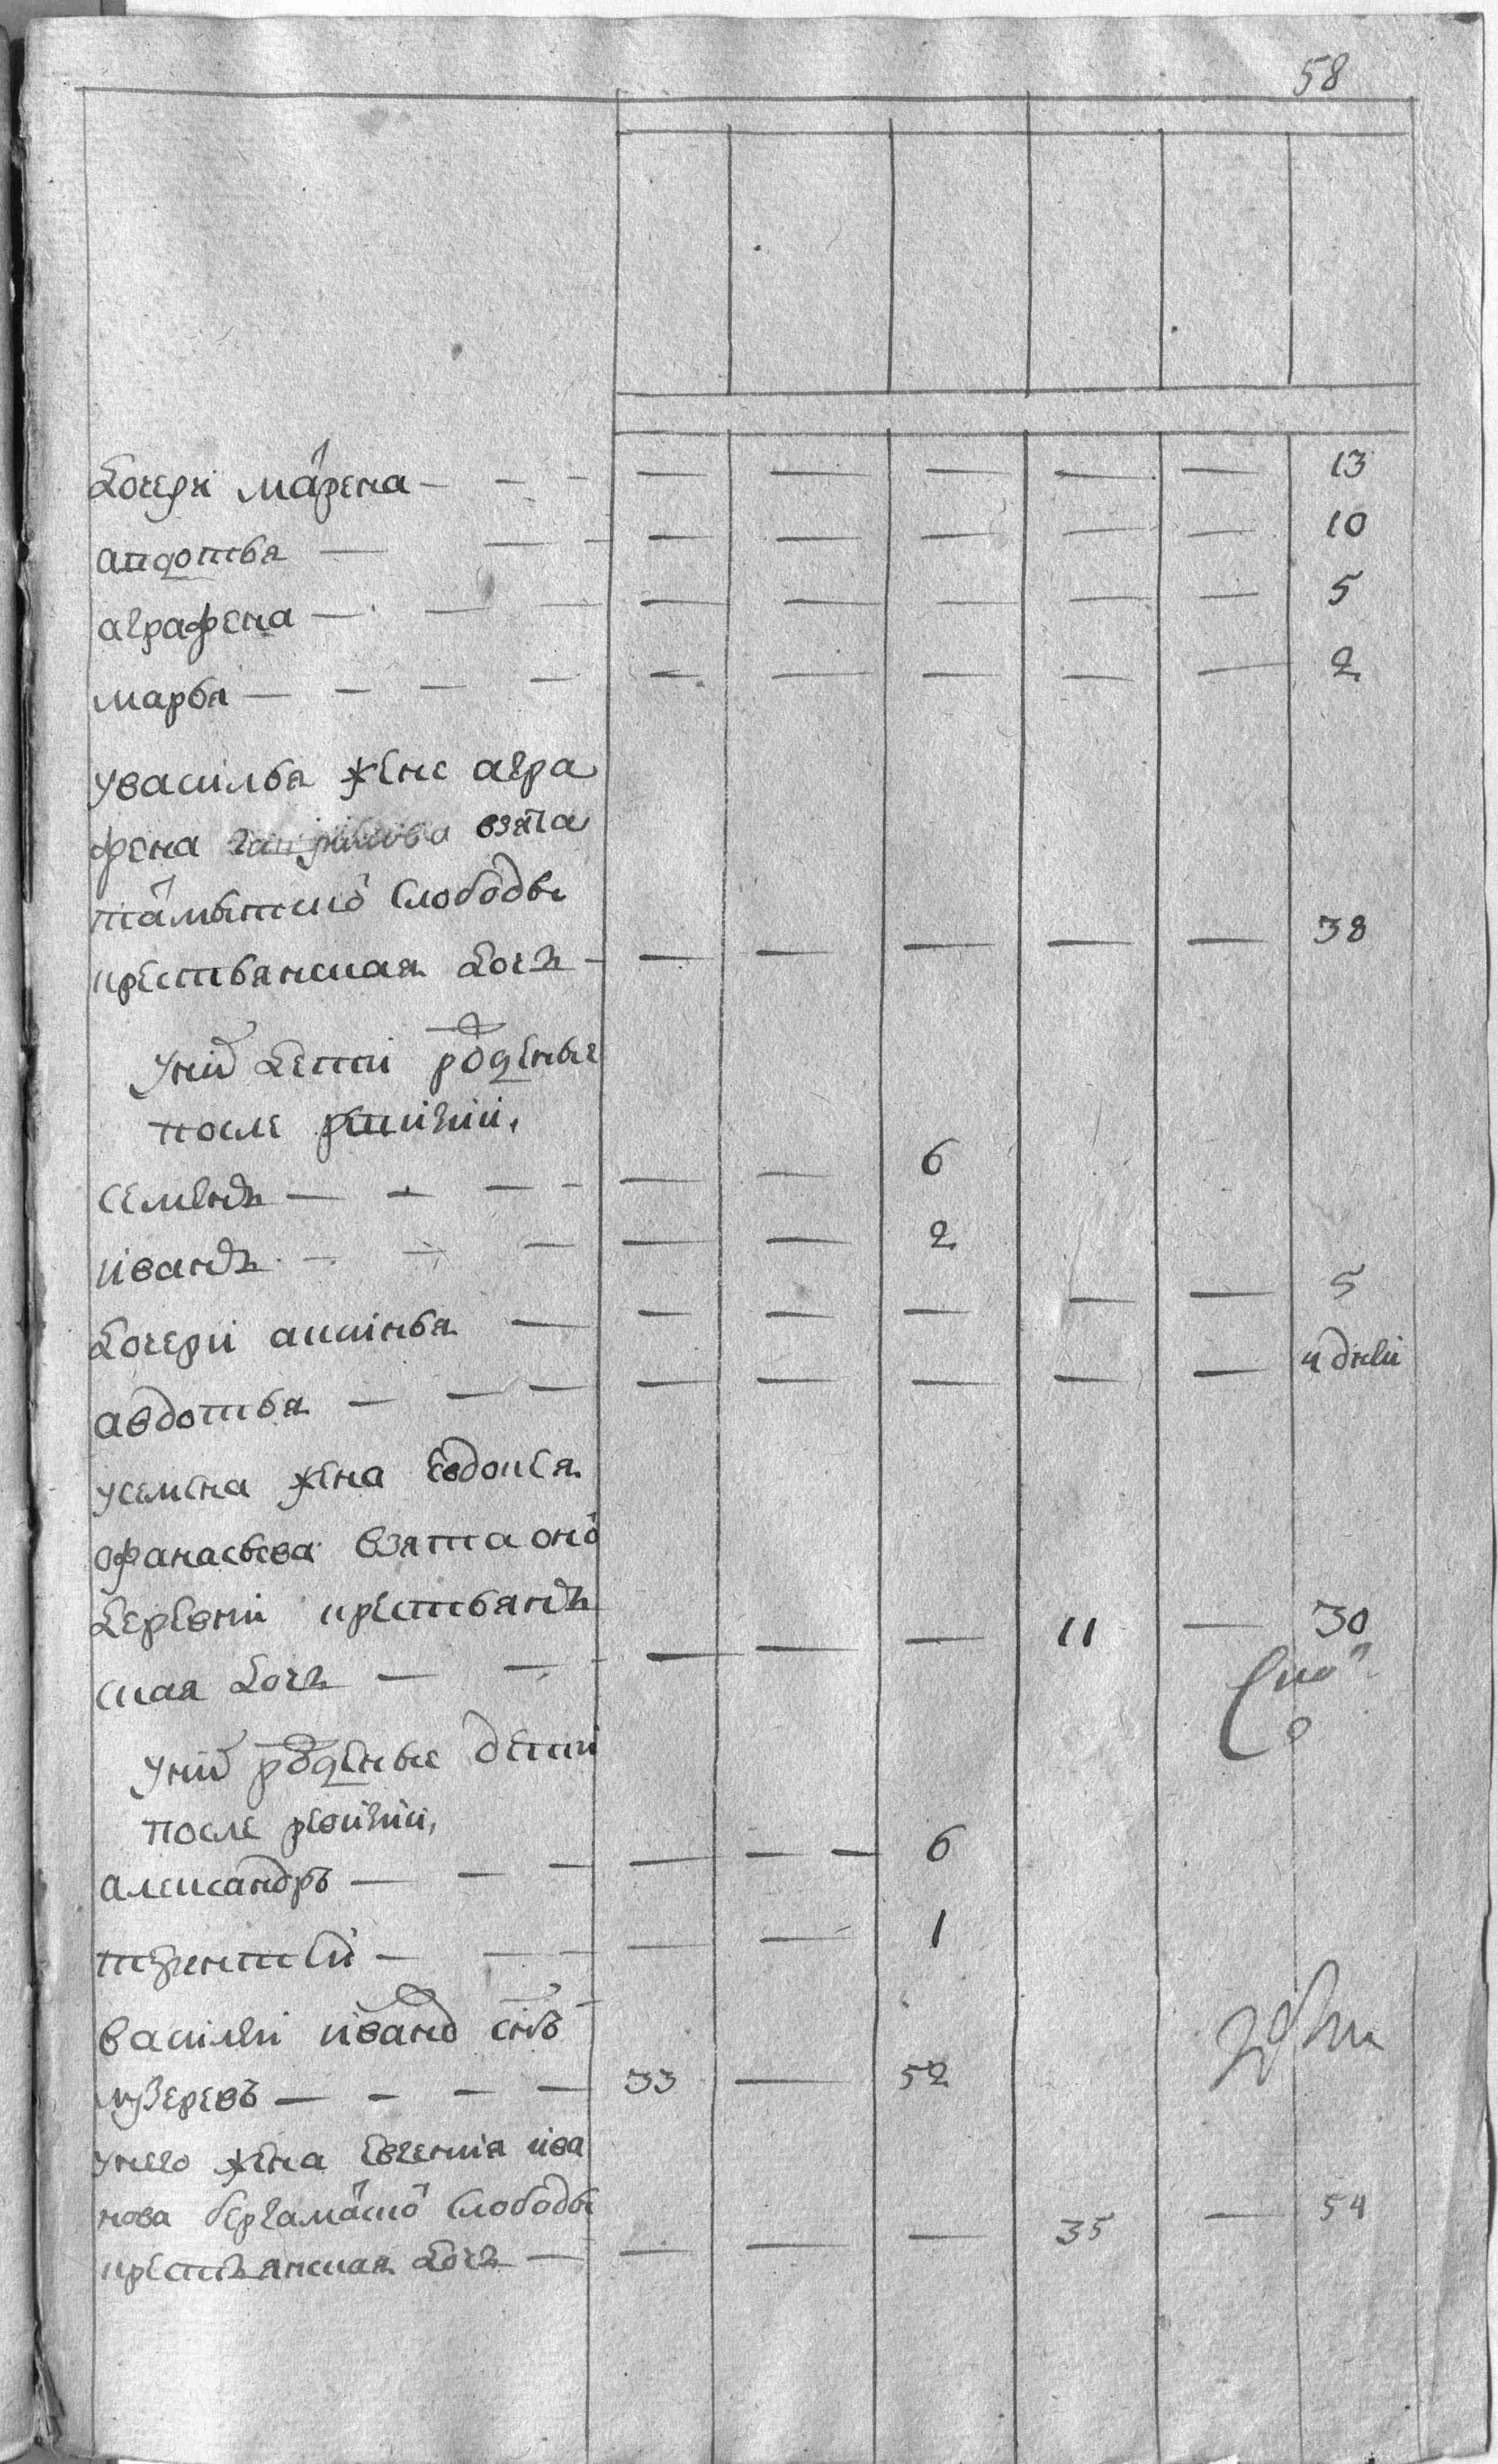 58
дочери марена — — — — — — — — 13
андотья — — — — — — — — 10
аграфена — — — — — — — — 5
марья — — — — — — — — — 2
увасилья жене агра
фена взята
тамытцко слободы
крестьянская дочь — — — — — — 38
уних дети роденые
после ревизии,
семенъ — — — — — — 6
иванъ — — — — — 2
дочери аксинья — — — — — — 5
авдотья — — — — — — — — 4 дней
усемена жена евдокея
офанасьева взята оно
деревни крестьянъ
ская дочь — — — — — 11 — 30
уних роденые дети
после ревизии,
александръ — — — — — — 6
терентей — — — — — 1
василей ивановъ снъ
мезеревъ — — — — 33 — 52
унего жена евгения ива
нова бергамацко слободы
крестьянская дочь — — — — 35 — 54